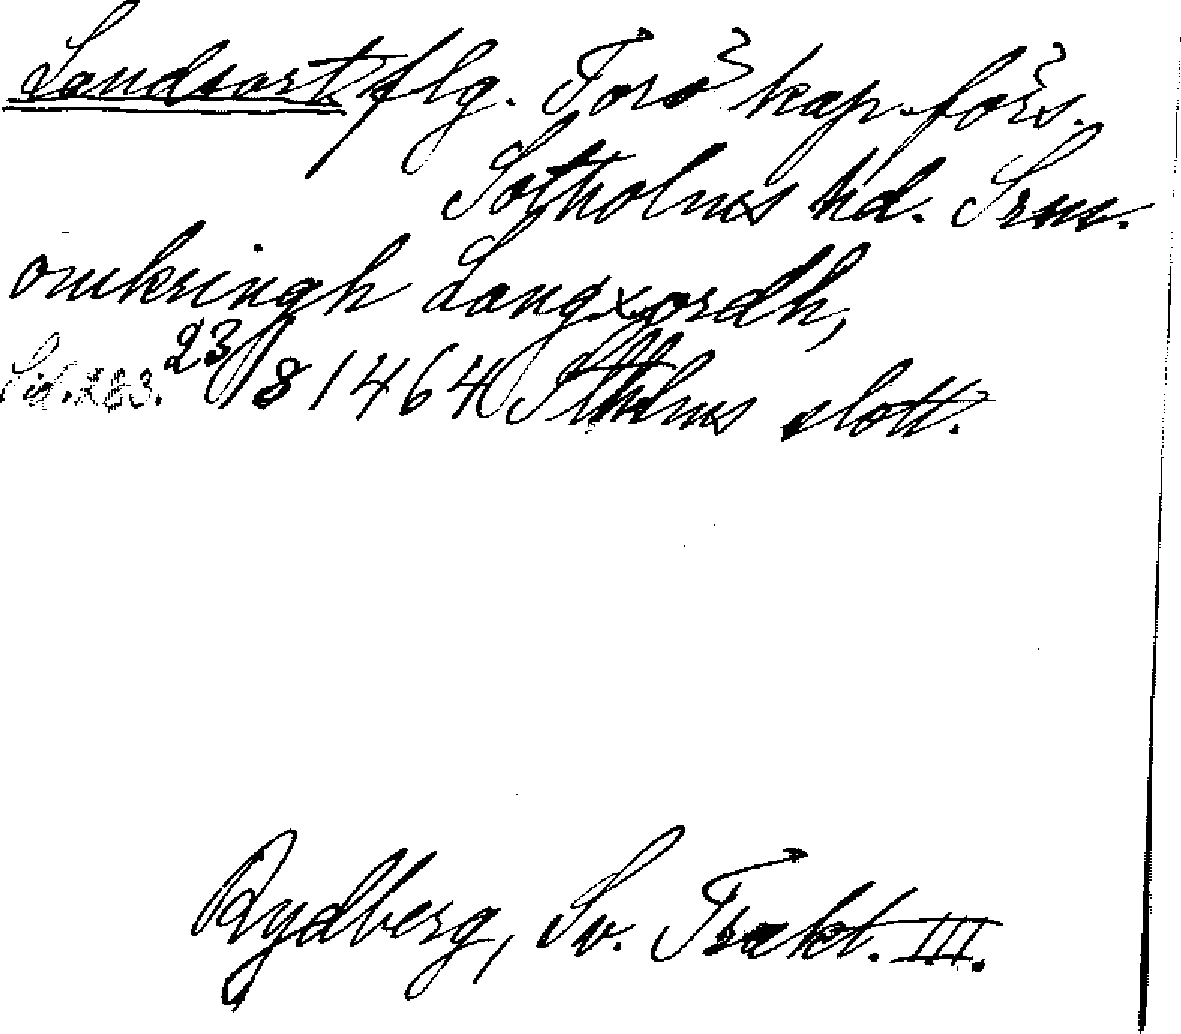 Landsort flg. Torö kap. förs.
Sotholms hd. Srm.
omkringh Langxordh,
Sid. 283. 23/8 1464 Sthlms slott.
Rydberg, Sv. Trakt. III.